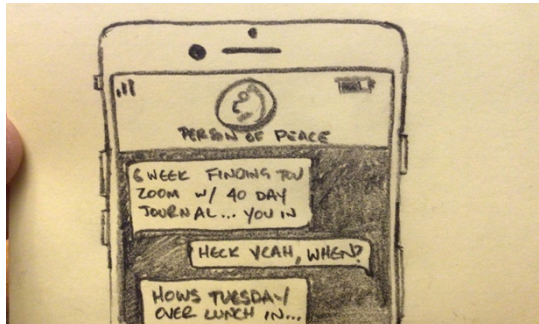 PERSON OF PEACE
6 WEEK FINDING YOU
ZOOM W/ 40 DAY
JOURNAL... YOU IN
HECK YEAH, WHEN?
HOWS TUESDAY
OVER LUNCH IN...